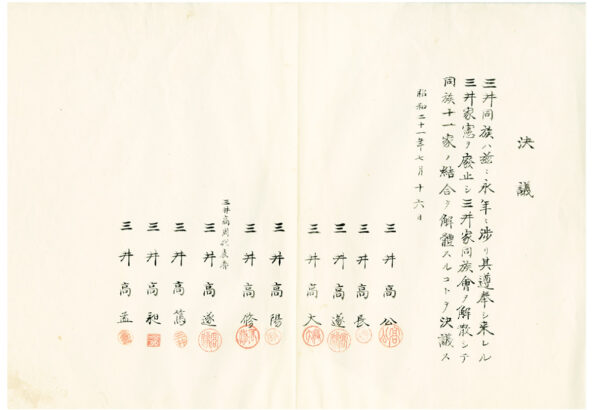 決議
三井同族ハ茲ニ永年ニ渉リ其遵奉シ来レル
三井家憲ヲ廃止シ三井家同族會ヲ解散シテ
同族十一家ノ結合ヲ解體スルコトヲ決議ス
昭和二十一年七月十六日
三井高公
三井高長
三井高遂
三井高大
三井高陽
三井高修
三井高周代表者
三井高遂
三井高篤
三井高昶
三井高孟